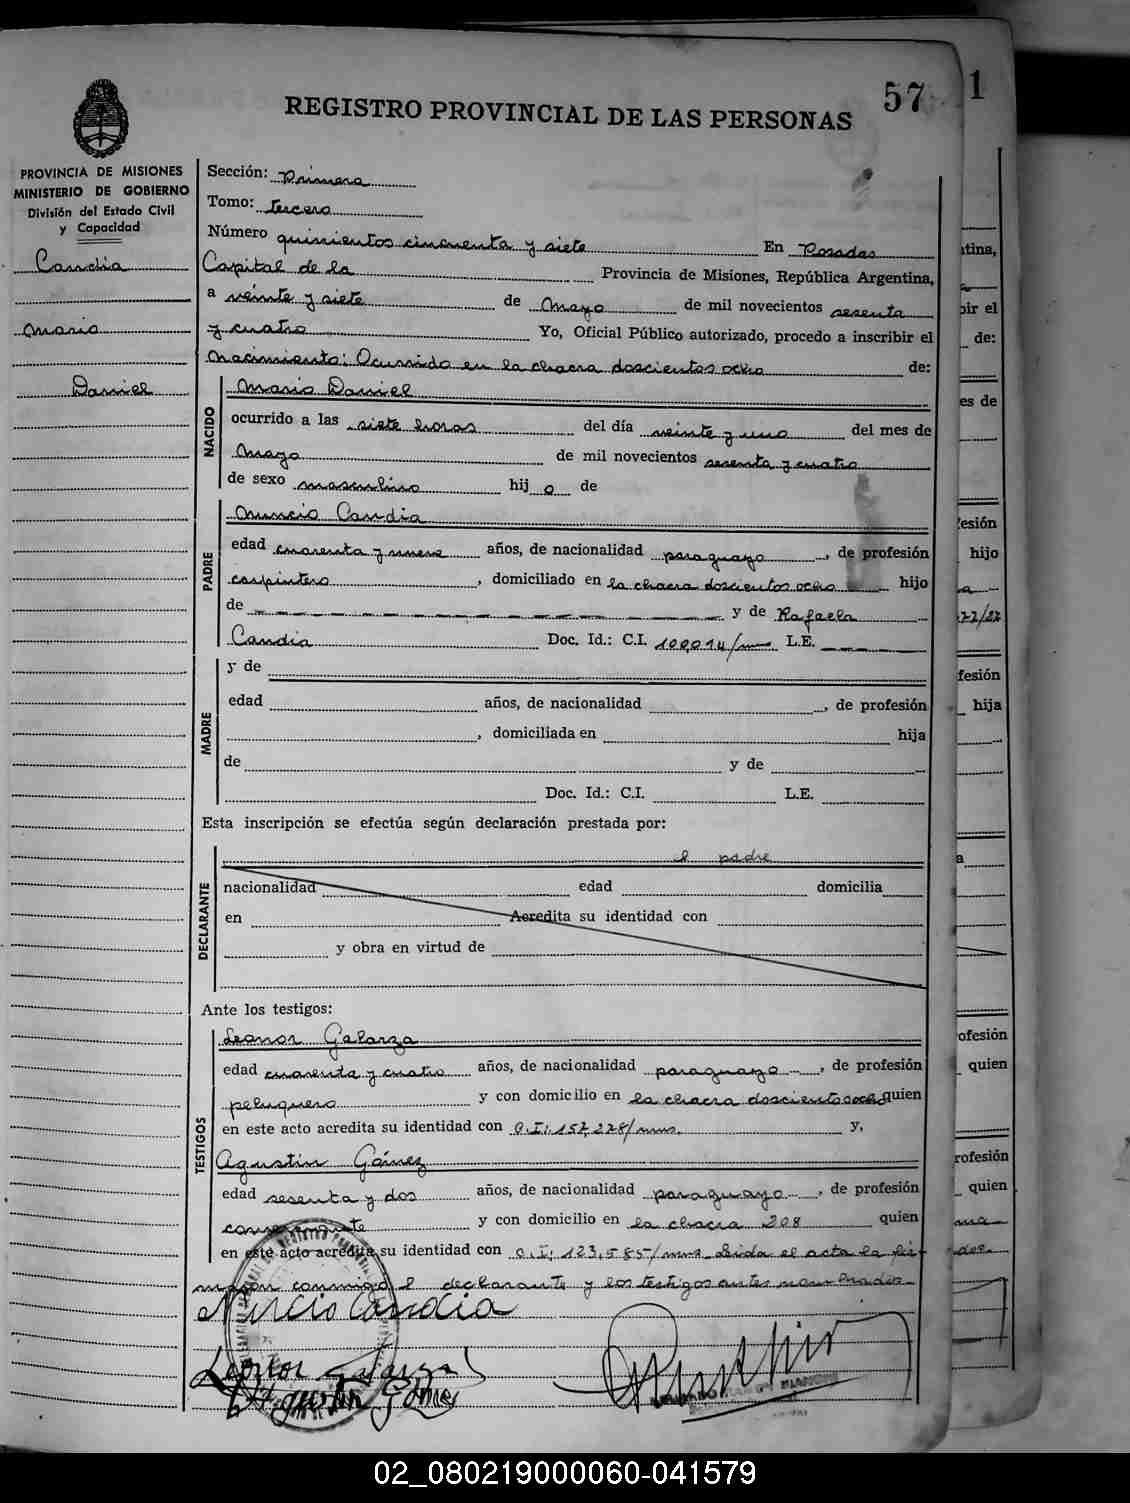 57
1
REGISTRO PROVINCIAL DE LAS PERSONAS
PROVINCIA DE MISIONES
MINISTERIO DE GOBIERNO
División del Estado Civil
y Capacidad
Candia
Mario
Daniel
Sección: Primera
Tomo: tercero
Número quinientos cincuenta y siete En Posadas
Capital de la Provincia de Misiones, República Argentina,
a veinte y siete de Mayo de mil novecientos sesenta
y cuatro Yo, Oficial Público autorizado, procedo a inscribir el
Nacimiento: Ocurrido en la chacra doscientos ocho de:
NACIDO
Mario Daniel
ocurrido a las siete horas del día veinte y uno del mes de
Mayo de mil novecientos sesenta y cuatro
de sexo masculino hij o de
PADRE
Nuncio Candia
edad cuarenta y nueve años, de nacionalidad paraguayo, de profesión
carpintero, domiciliado en la chacra doscientos ocho hijo
de y de Rafaela
Candia Doc. Id.: C.I. 100,014/mnes L.E.
MADRE
y de
edad años, de nacionalidad , de profesión
, domiciliada en hija
de y de
Doc. Id.: C.I. L.E.
Esta inscripción se efectúa según declaración prestada por:
DECLARANTE
el padre
nacionalidad edad domicilia
en Acredita su identidad con
y obra en virtud de
Ante los testigos:
TESTIGOS
Leonor Galarza
edad cuarenta y cuatro años, de nacionalidad paraguayo, de profesión
peluquero y con domicilio en la chacra doscientos ocho quien
en este acto acredita su identidad con C.I: 157,228/mns. y,
Agustin Gómez
edad sesenta y dos años, de nacionalidad paraguayo, de profesión
y con domicilio en la chacra 208 quien
en este acto acredita su identidad con C.I: 123,585/mns Leida el acta la fir-
maron conmigo el declarante y los testigos antes nombrados.-
Nuncio Candia
Leonor Galarza
Agustin Gomez
tina,
bir el
de:
es de
fesión
hijo
fesión
hija
ofesión
quien
rofesión
quien
02_080219000060-041579